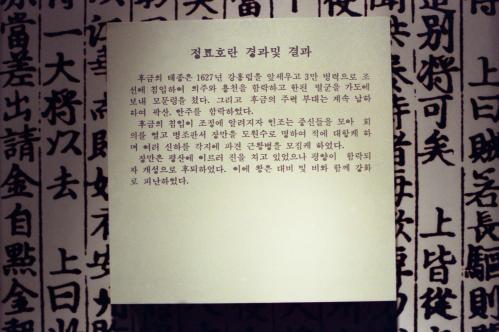 정묘호란 경과및 결과
후금의 태종은 1627년 강홍립을 앞세우고 3만 병력으로 조
선에 침입하여 의주와 용천을 함락하고 한편 별군을 가도에
보내 모문룡을 쳤다. 그리고 후금의 주력 부대는 계속 남하
하여 곽산, 안주를 함락하였다.
후금의 침입이 조정에 알려지자 인조는 중신들을 모아 회
의를 열고 병조판서 장만을 도원수로 명하여 적에 대항케 하
며 여러 신하를 각지에 파견 근왕병을 모집케 하였다.
장만은 평산에 이르러 진을 치고 있었으나 평양이 함락되
자 개성으로 후퇴하였다. 이에 왕은 대비 및 비와 함께 강화
로 피난하였다.
名長驅則
別將可矣 上皆從
一大將以去 上曰
當差出請金自點金